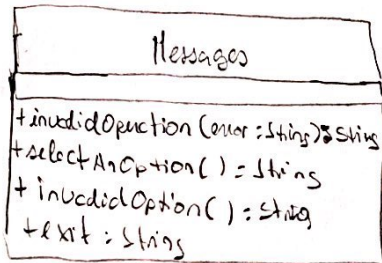 Messages
+invalidOperction(error:String):String
+selectAnOption():String
+invalidOption():String
+exit:String